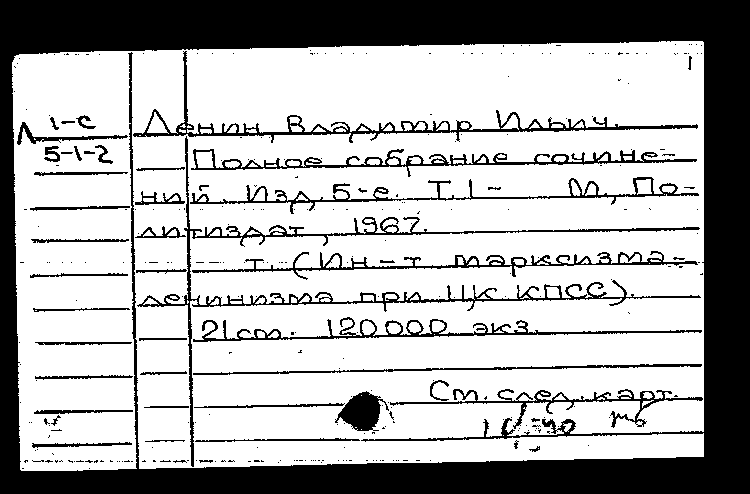 1
Л 1-С
5-1-2
Ленин, Владимир Ильич.
Полное собрание сочине-
ний. Изд. 5-е. Т. 1- М., По-
литиздат, 1967.
т. (Ин-т марксизма-
ленинизма при ЦК КПСС).
21 cm. 120 000 экз.
См. след. карт.